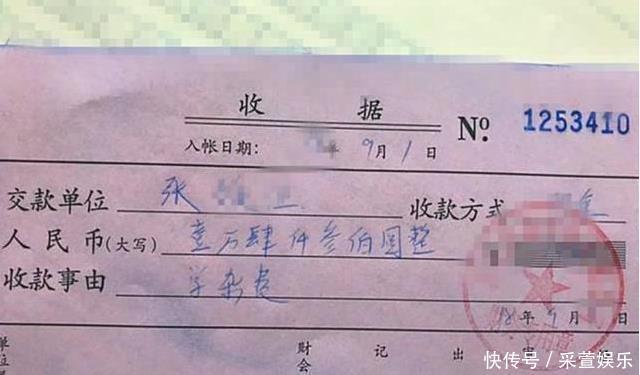 收 据
№ 1253410
入帐日期: 年 9月 1 日
交款单位 张 收款方式
人民币(大写) 壹万肆仟叁佰圆整
收款事由 学杂费
18年 9月 日
单位 财会 记 出
快传号 / 采萱娱乐